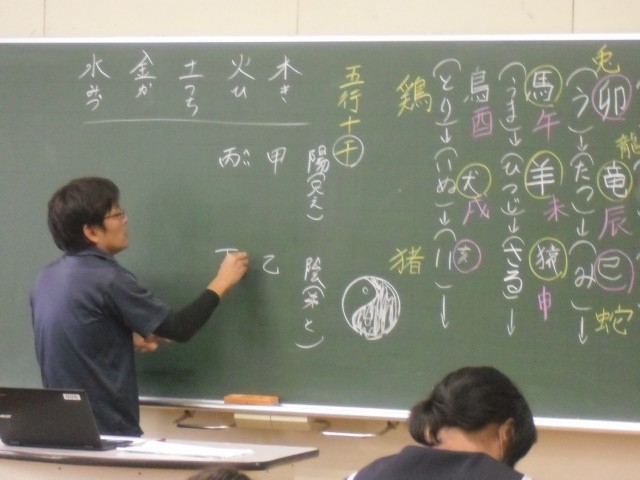 兎
卯
(う)→(たつ)→(み)→
龍
竜
辰
巳
蛇
馬
午
(うま)→(ひつじ)→(さる)→
羊
未
猿
申
鳥
酉
(とり)→(いぬ)→(い)→
犬
戌
亥
鶏
猪
五行十干
陽(兄え)
甲
丙
陰(弟と)
乙
丁
木き
火ひ
土つち
金か
水みづ